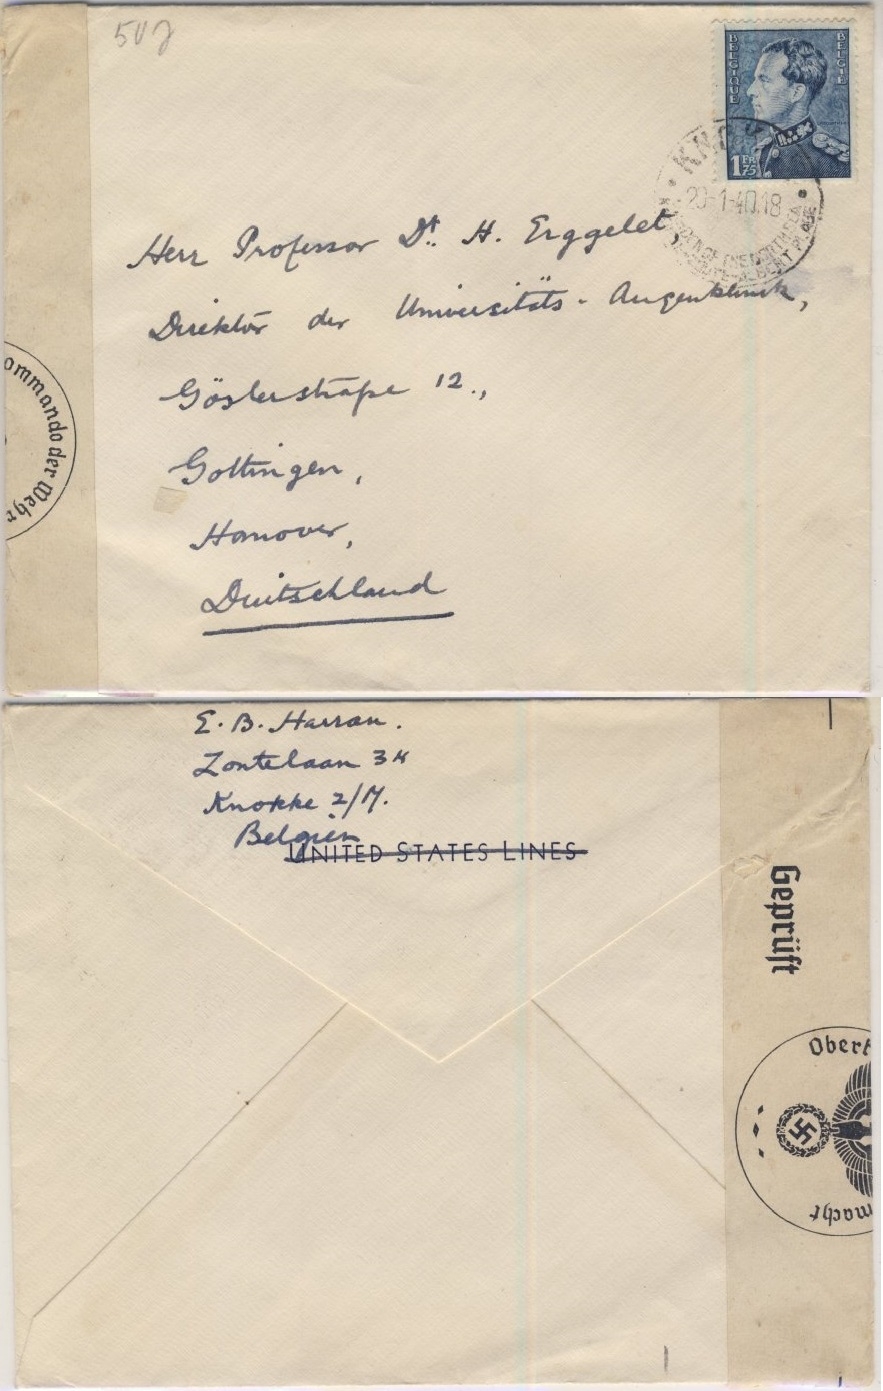 BELGIQUE
BELGIE
1 FR 75
KNO
20-1-40.18
Herr Professor Dr. H. Erggelet,
Direktor der Universitäts-Augenklinik,
Göslerstraße 12.,
Gottingen,
Hanover,
Deutschland
ommando der Wehr
E. B. Harran.
Zontelaan 34
Knokke Z/M.
Belgien
UNITED STATES LINES
Geprüft
Ober
macht